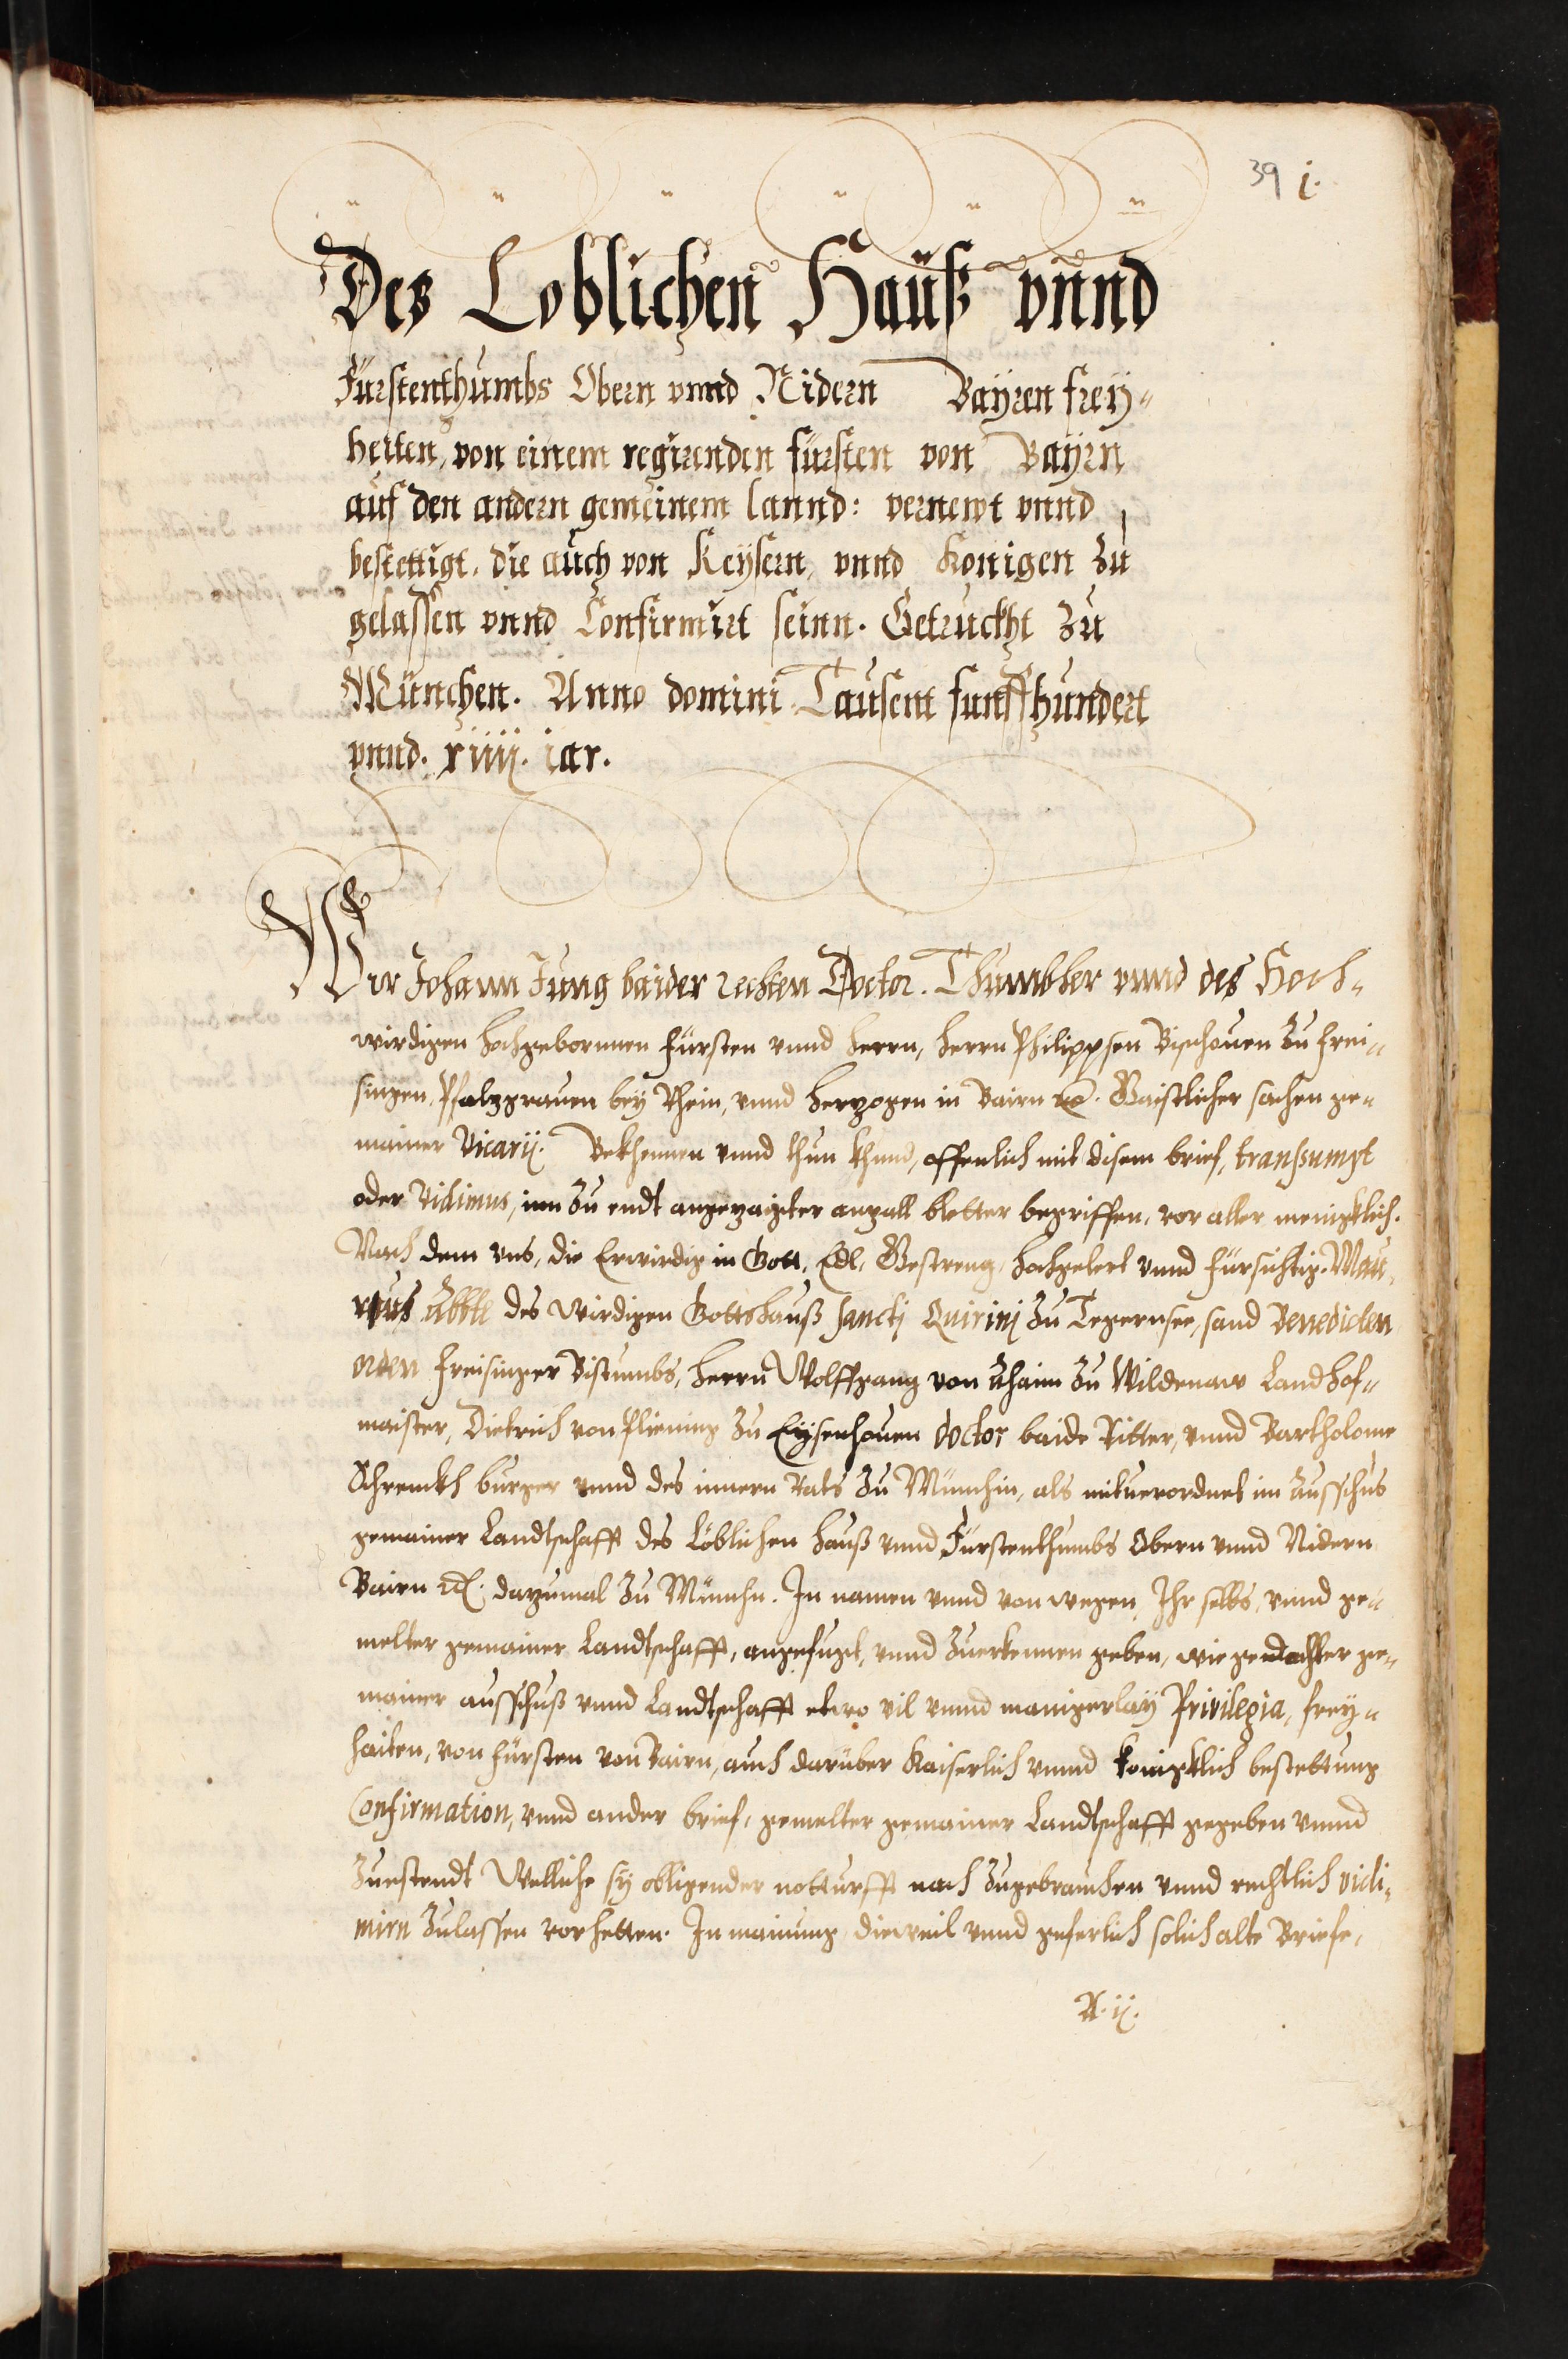 39 i.
Des Loblichen Hauß vnnd
Fürstenthumbs Obern vnnd Nidern Bayren frey„
heiten, von einem regirenden fürsten von Bayrn
auf den andern gemeinem lannd: vernewt vnnd
bestettigt. die auch von Keysern, vnnd Konigen zu
gelassen vnnd Confirmirt seinn. Getruckht zu
München. Anno domini Tausent funffhundert
vnnd. xiiij. iar.
Wir Johann Jung baider rechten Doctor. Thumbher vnnd des Hoch„
wirdigen hochgebornnen fürsten vnnd herrn, herrn Philippsen Bischouen zu frei„
singen, Pfaltzgrauen bey Rhein, vnnd herzogen in Bairn ꝛc. Gaistlicher sachen ge„
mainer Vicarij. Bekhennen vnnd thun khund, offenlich mit disem brief, transsumpt
oder Vidimus, inn zu endt angezaigter anzall bletter begriffen, vor aller menigklich.
Nach dem vns, die Erwirdig in Gott, Edl, Gestreng, hochgelert vnnd fürsichtig. Mau„
rus Abbte des wirdigen Gottshauß Sancti Quirinj zu Tegernsee, sand Benedicten
orden freisinger Bistumbs, herrn Wolffgang von Ahaim zu Wildenaw Landhof„
maister, Dietrich von Pliening zu Eysenhouen doctor baide Ritter, vnnd Bartholome
Schrenckh burger vnnd des innern Rats zu Münnchin, als mituerordnet im Ausschus
gemainer Landtschafft des Löblichen hauß vnnd Fürstenthumbs Obern vnnd Nidern
Bairn ꝛc. dazumal zu Münnchn. In namen vnnd von wegen Ihr selbs, vnnd ge„
melter gemainer Landtschafft, angefugt, vnnd zuerkennen geben, wie gedachter ge„
mainer ausschuß vnnd Landtschafft etwo vil vnnd manigerlay Privilegia, frey„
haiten, von fürsten von Bairn, auch darüber Kaiserlich vnnd konigklich bestettung
Confirmation, vnnd ander brief, gemelter gemainer Landtschafft gegeben vnnd
zuestendt Welliche sy obligender notturfft nach zugebrauchen vnnd rechtlich vidi„
mirn zulassen vorhetten. In mainung dieweil vnnd geferlich solich alte Briefe,
A. ij.